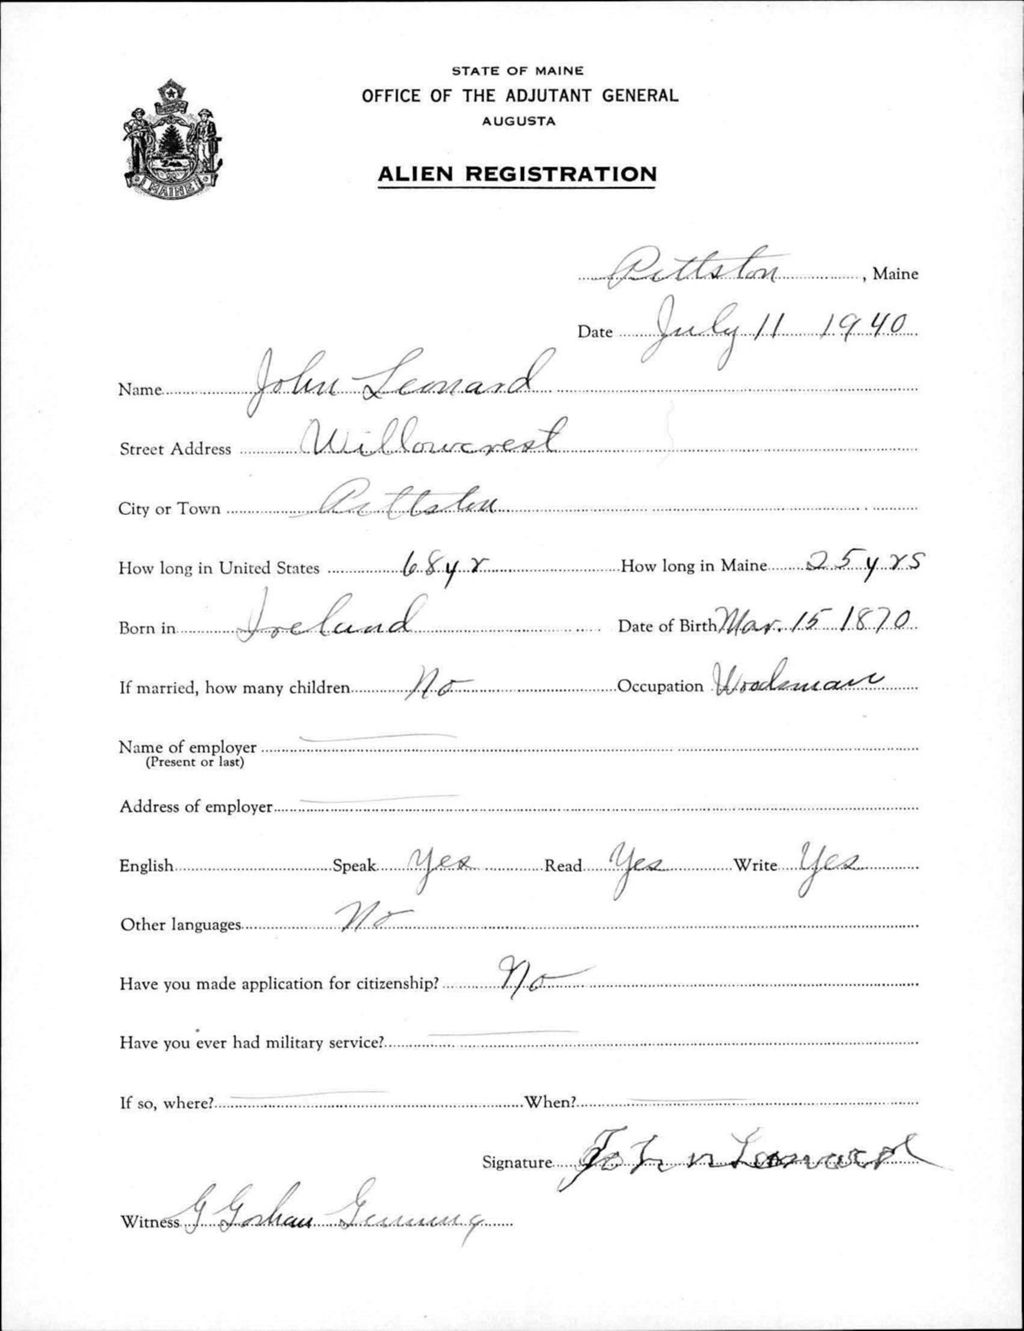 STATE OF MAINE
OFFICE OF THE ADJUTANT GENERAL
AUGUSTA
MAINE
ALIEN REGISTRATION
Pittston, Maine
Date July 11 1940
Name John Leonard
Street Address Willowcrest
City or Town Pittston
How long in United States 68 yr How long in Maine 25 yrs
Born in Ireland Date of Birth Mar. 15 1870
If married, how many children No Occupation Woodsman
Name of employer
(Present or last)
Address of employer
English Speak Yes Read Yes Write Yes
Other languages No
Have you made application for citizenship? No
Have you ever had military service?
If so, where? When?
Signature John Leonard
Witness G Gorham